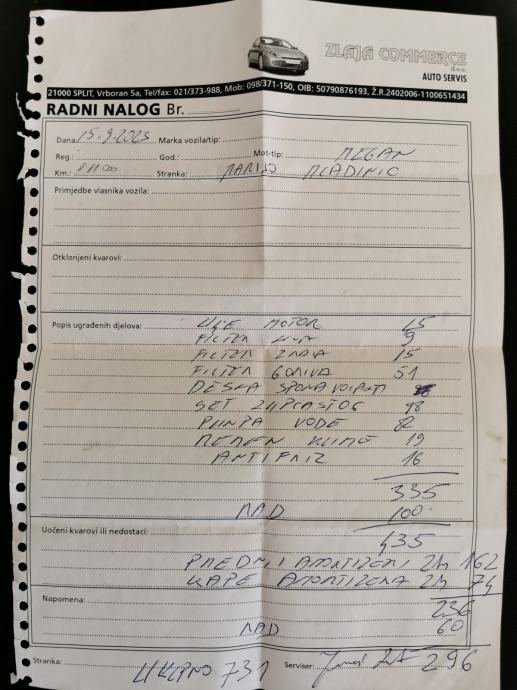 ZLAJA COMMERCE
d.o.o.
AUTO SERVIS
21000 SPLIT, Vrboran 5a, Tel/fax: 021/373-988, Mob: 098/371-150, OIB: 50790876193, Ž.R.2402006-1100651434
RADNI NALOG Br.
Dana 15.9.2023 Marka vozila/tip:
Reg.: God.: Mot-tip: MEGAN
Km.: Stranka: MARIJO MLADINIC
Primjedbe vlasnika vozila:
Otklonjeni kvarovi:
Popis ugrađenih djelova: ULJE MOTOR 45
FILTER ULJA 9
FILTER ZRAKA 15
FILTER GORIVA 51
DESNA SPONA VOLANA
SET ZUPČASTOG 98
PUMPA VODE 82
REMEN KLIME 19
ANTIFRIZ 16
335
RAD 100
Uočeni kvarovi ili nedostaci: 435
PREDNJI AMORTIZERI 2k 162
KAPE AMORTIZERA 2k 74
Napomena: 236
RAD 60
Stranka: UKUPNO 731 Serviser: 296